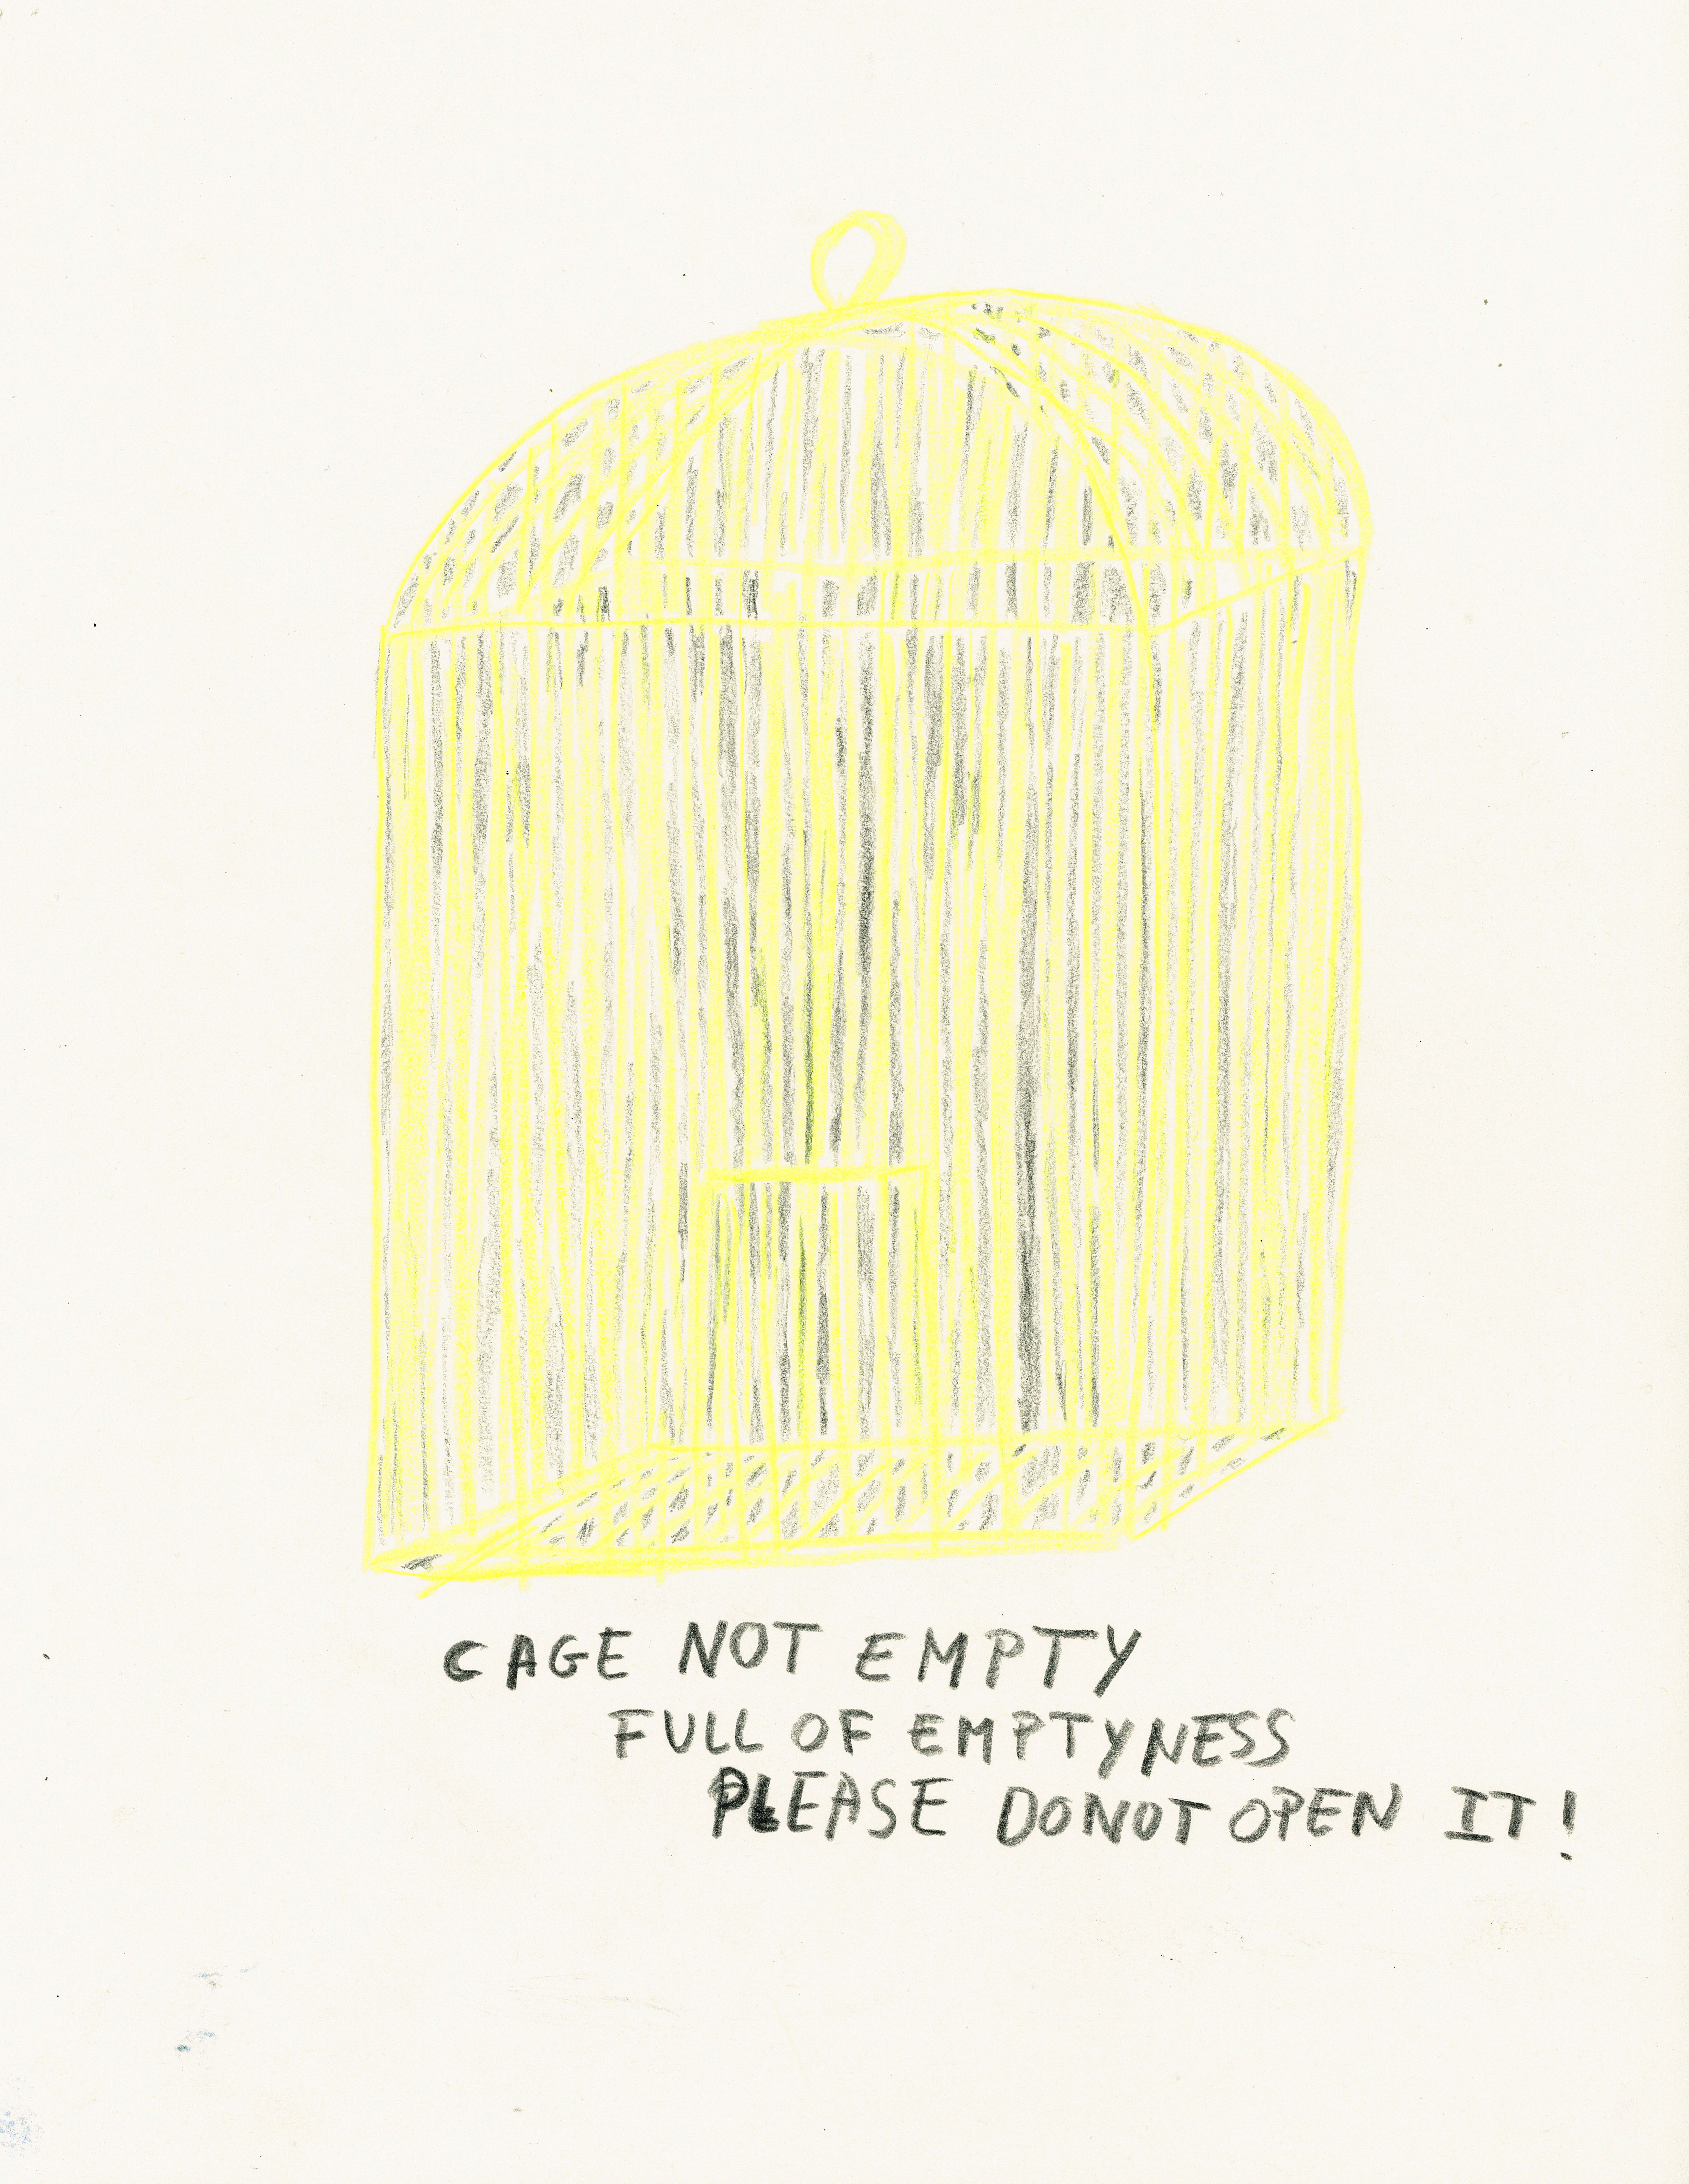 CAGE NOT EMPTY
FULL OF EMPTYNESS
PLEASE DO NOT OPEN IT!